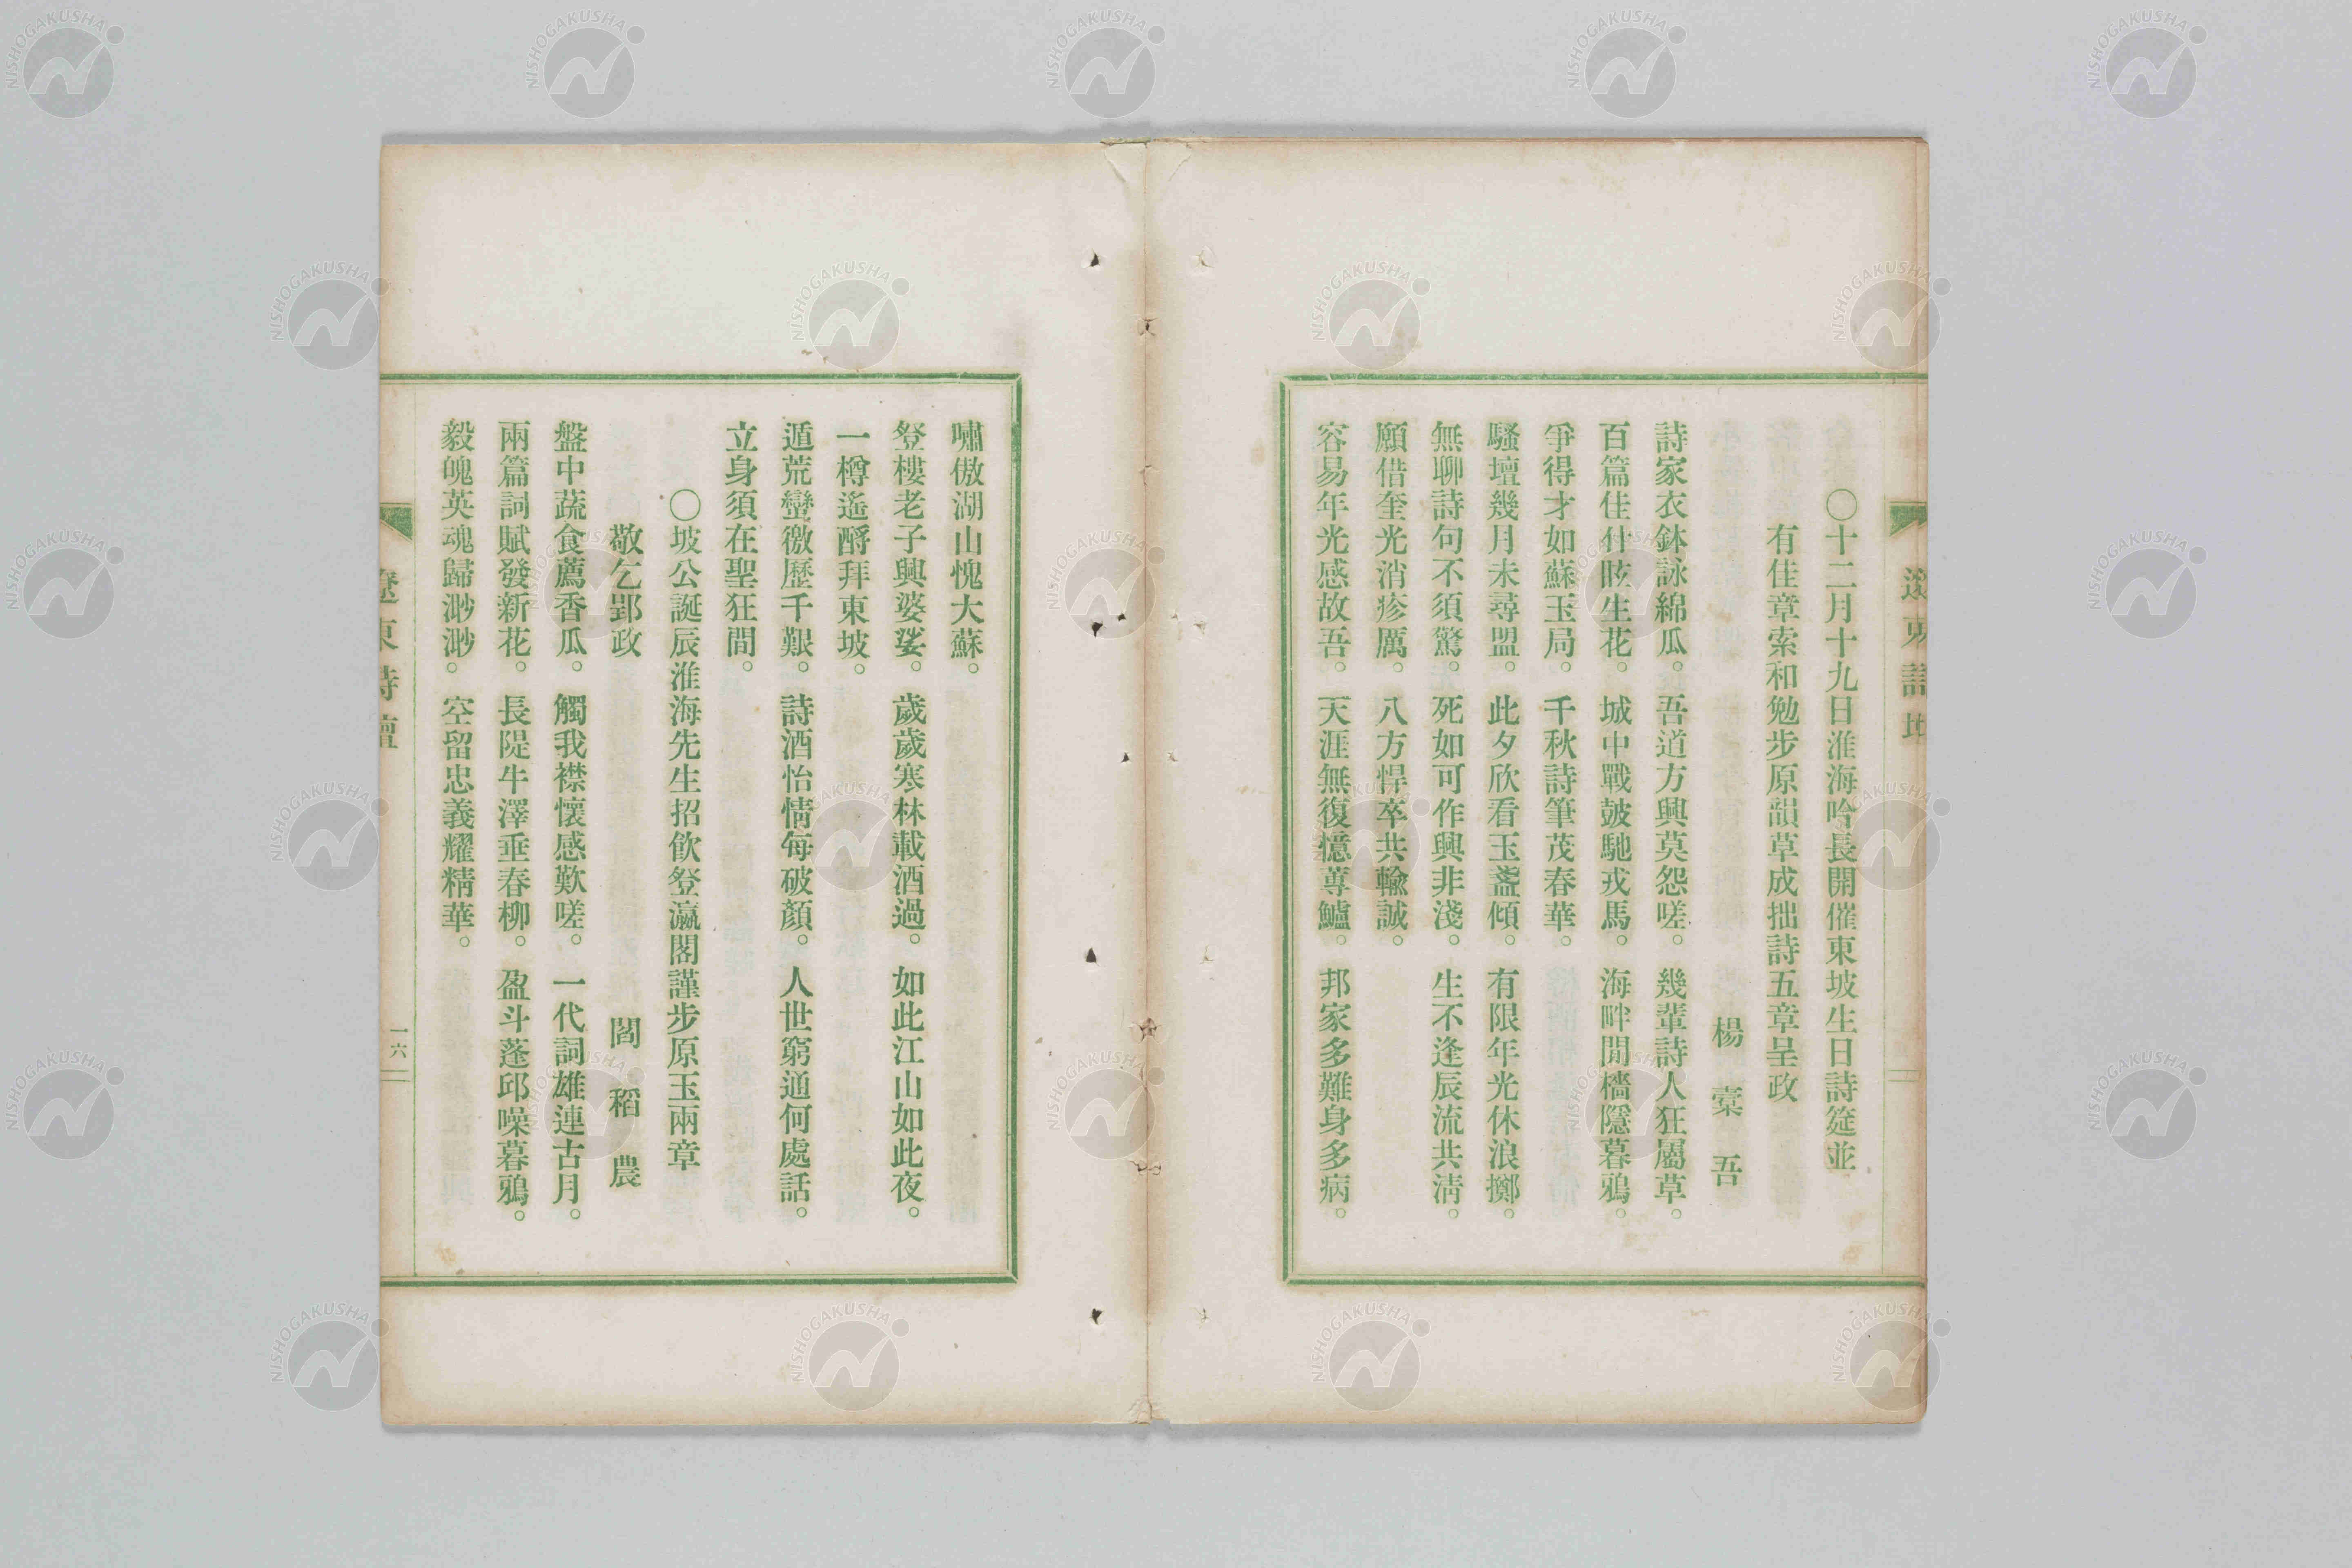 〇十二月十九日淮海哈長開催東坡生日詩筵並
有佳章索和勉步原韻草成拙詩五章呈政
楊棗吾
詩家衣鉢詠綿瓜。吾道方興莫怨嗟。幾輩詩人狂屬草。
百篇佳什眩生花。城中戰皷馳戎馬。海畔閒檣隱暮鴉。
爭得才如蘇玉局。千秋詩筆茂春華。
騷壇幾月未尋盟。此夕欣看玉盞傾。有限年光休浪擲。
無聊詩句不須驚。死如可作興非淺。生不逢辰流共淸。
願借奎光消疹厲。八方悍卒共輸誠。
容易年光感故吾。天涯無復憶蓴鱸。邦家多難身多病。
嘯傲湖山愧大蘇。
登樓老子興婆娑。歲歲寒林載酒過。如此江山如此夜。
一樽遙酹拜東坡。
遁荒蠻徼歷千艱。詩酒怡情每破顏。人世窮通何處話。
立身須在聖狂間。
〇坡公誕辰淮海先生招飮登瀛閣謹步原玉兩章
敬乞郢政
閻稻農
盤中蔬食薦香瓜。觸我襟懷感歎嗟。一代詞雄連古月。
兩篇詞賦發新花。長隄牛澤垂春柳。盈斗蓬邱噪暮鴉。
毅魄英魂歸渺渺。空留忠義耀精華。
遼東詩壇
一六
NISHOGAKUSHA